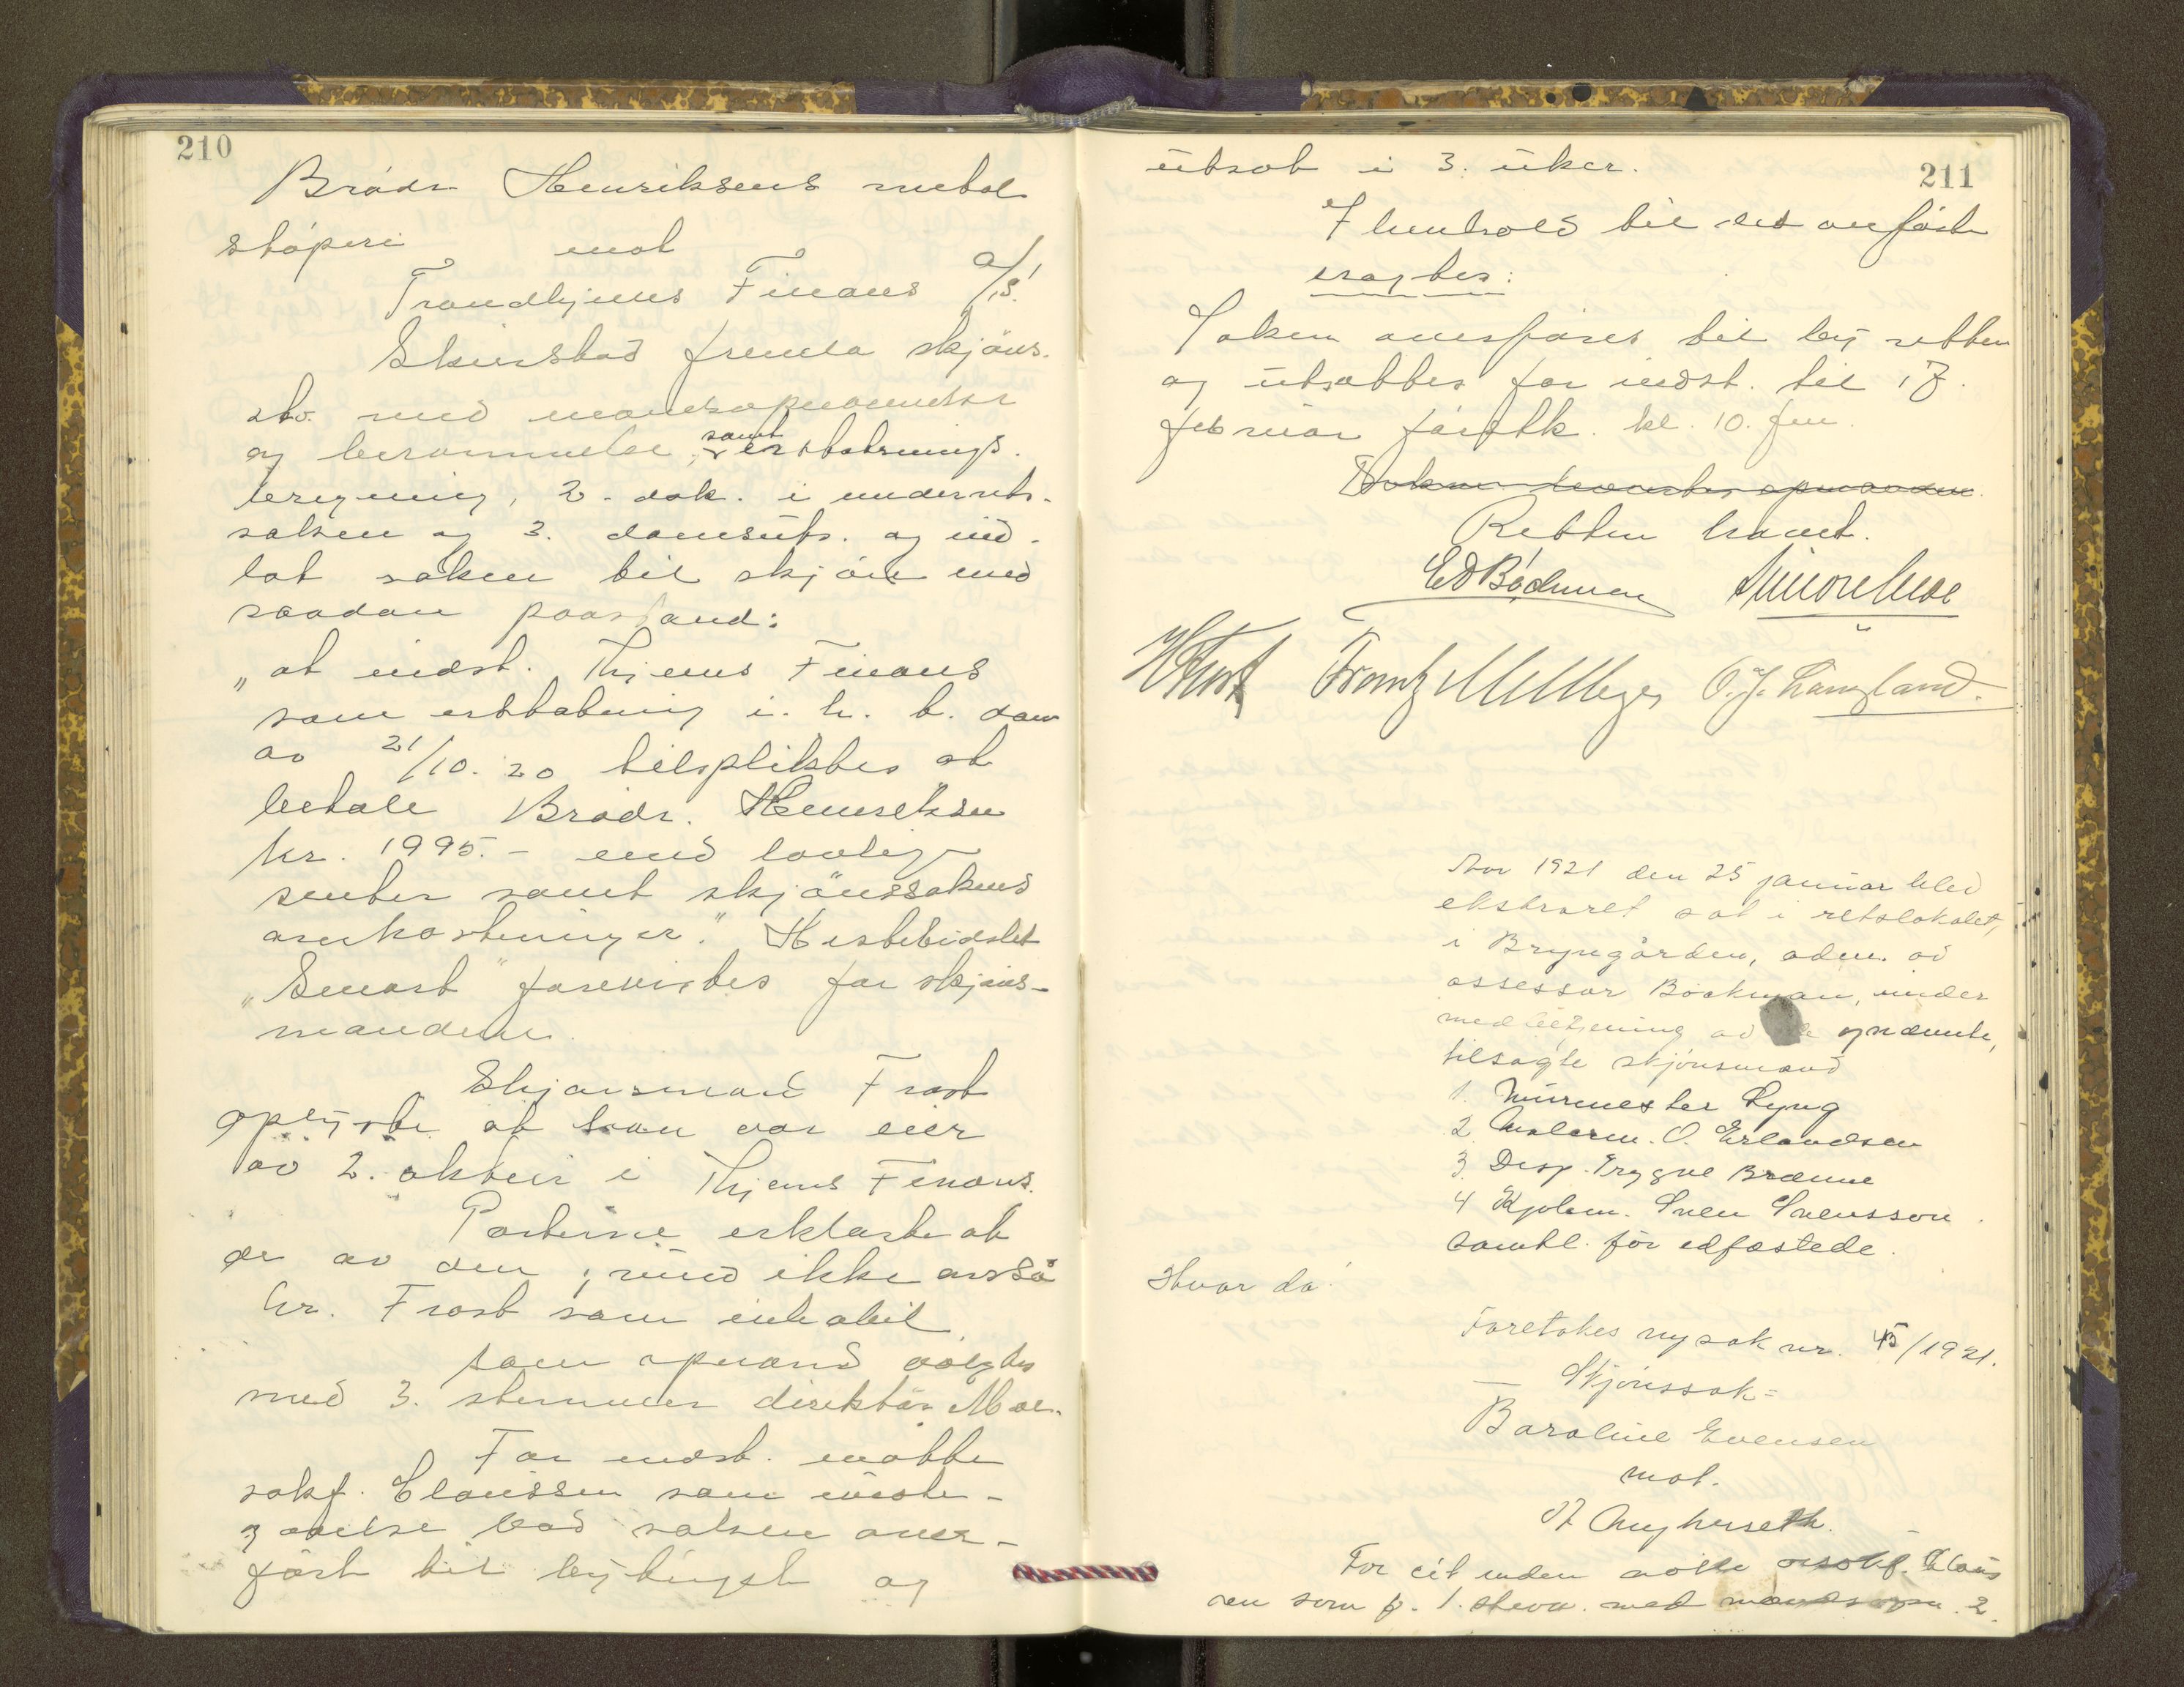 210
Brødr Henriksens metal
støperi mot
Trondhjems Finans A/S.
Skinstad fremla skjøns-
stv. med mandsopnævnelse
og berammelse, samt erstatnings-
beregning, 2. dok. i underrets-
saken og 3. domsuts. og ind-
lot saken til skjøn med
saadan paastand:
„at indst. Thjems Finans
som erstatning i. h. t. dom
av 21/10. 20 tilpliktes at
betale Brødr. Henriksen
kr. 1995.- med lovlige
renter samt skjønssakens
omkostninger." Hestebidslet
„Smart" forevistes for skjøns-
mændene.
Skjønsmand Frost
oplyste at han var eier
av 2. aktier i Thjems Finans.
Parterne erklærte at
de av den grund ikke anså
hr. Frost som inhabil.
Som opmand valgtes
med 3. stemmer direktør Moe.
For indst. møtte
sakf. Claussen som
bad saken over-
ført til bytinget og
211
utsat i 3. uker.
I henhold til det anførte
eragtes:
Saken overføres til byretten
og utsættes for indst. til 17.
februar førstk. kl. 10. fm.
Retten hævet.
Ed Bøckman Simon Moe
H Frost Frantz M Meyer O. J. Langland.
Aar 1921 den 25 januar blev
ekstraret sat i retslokalet,
i Bryngården, adm. av
assessor Bøckman, under
medbetjening av de opnævnte,
tilsagte skjønsmænd
1. Murmester Lyng
2. Malerm. O. Erlandsen
3. Disp. Trygve Brænne
4 Kjølem. Sven Svensson.
Samtl. før edfæstede.
Hvor da!
Foretokes ny sak nr. 45/1921.
Skjønssak=
Baroline Evensen
mot.
For citinden møtte orsakf. Claus
sen som f. 1. stevn. med mandsopn. 2.